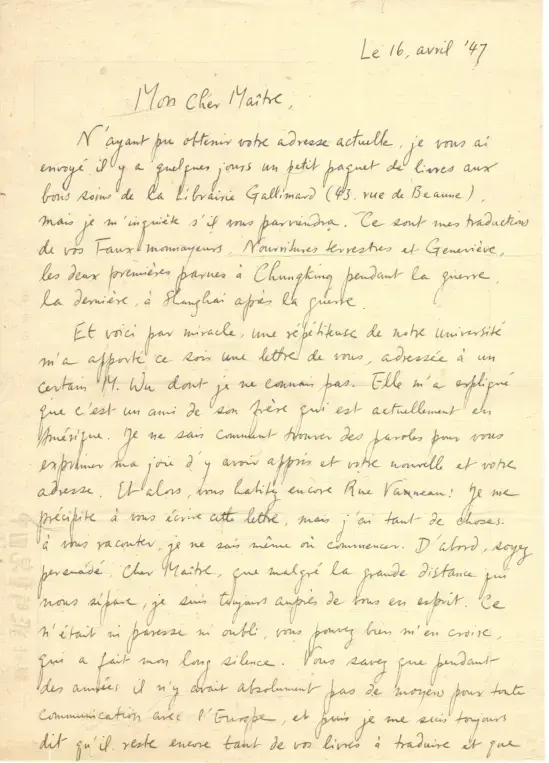 Le 16, avril '47
Mon Cher Maître,
N'ayant pu obtenir votre adresse actuelle, je vous ai
envoyé il y a quelques jours un petit paquet de livres aux
bons soins de la Librairie Gallimard (43. rue de Beaune),
mais je m'inquiète s'il vous parviendra. Ce sont mes traductions
de vos Faux-monnayeurs, Nourritures terrestres et Geneviève,
les deux premières parues à Chungking pendant la guerre,
la dernière, à Shanghai après la guerre.
Et voici par miracle, une répétiteuse de notre université
m'a apporté ce soir une lettre de vous, adressée à un
certain M. Wu dont je ne connais pas. Elle m'a expliqué
que c'est un ami de son frère qui est actuellement en
Amérique. Je ne sais comment trouver des paroles pour vous
exprimer ma joie d'y avoir appris et votre nouvelle et votre
adresse. Et alors, vous habitez encore Rue Vanneau! Je me
précipite à vous écrire cette lettre, mais j'ai tant de choses
à vous raconter, je ne sais même où commencer. D'abord, soyez
persuadé, Cher Maître, que malgré la grande distance qui
nous sépare, je suis toujours auprès de vous en esprit. Ce
n'était ni paresse ni oubli, vous pouvez bien m'en croire,
qui a fait mon long silence. Vous savez que pendant
des années il n'y avait absolument pas de moyen pour toute
communication avec l'Europe, et puis je me suis toujours
dit qu'il reste encore tant de vos livres à traduire et que